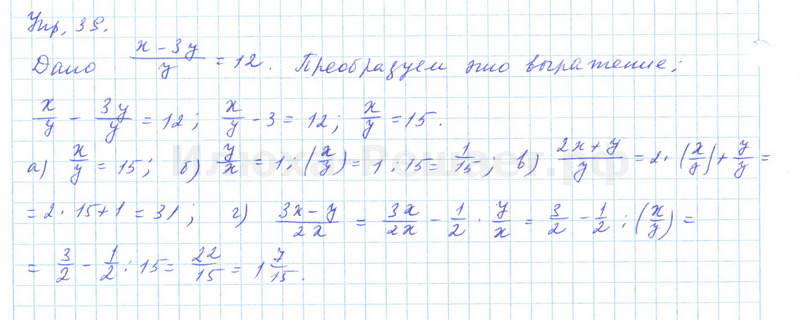 Упр. 39.
Дано (x - 3y)/y = 12. Преобразуем это выражение:
x/y - 3y/y = 12; x/y - 3 = 12; x/y = 15.
а) x/y = 15; б) y/x = 1 : (x/y) = 1 : 15 = 1/15; в) (2x + y)/y = 2 · (x/y) + y/y =
= 2 · 15 + 1 = 31; г) (3x - y)/2x = 3x/2x - 1/2 · y/x = 3/2 - 1/2 : (x/y) =
= 3/2 - 1/2 : 15 = 22/15 = 1 7/15.